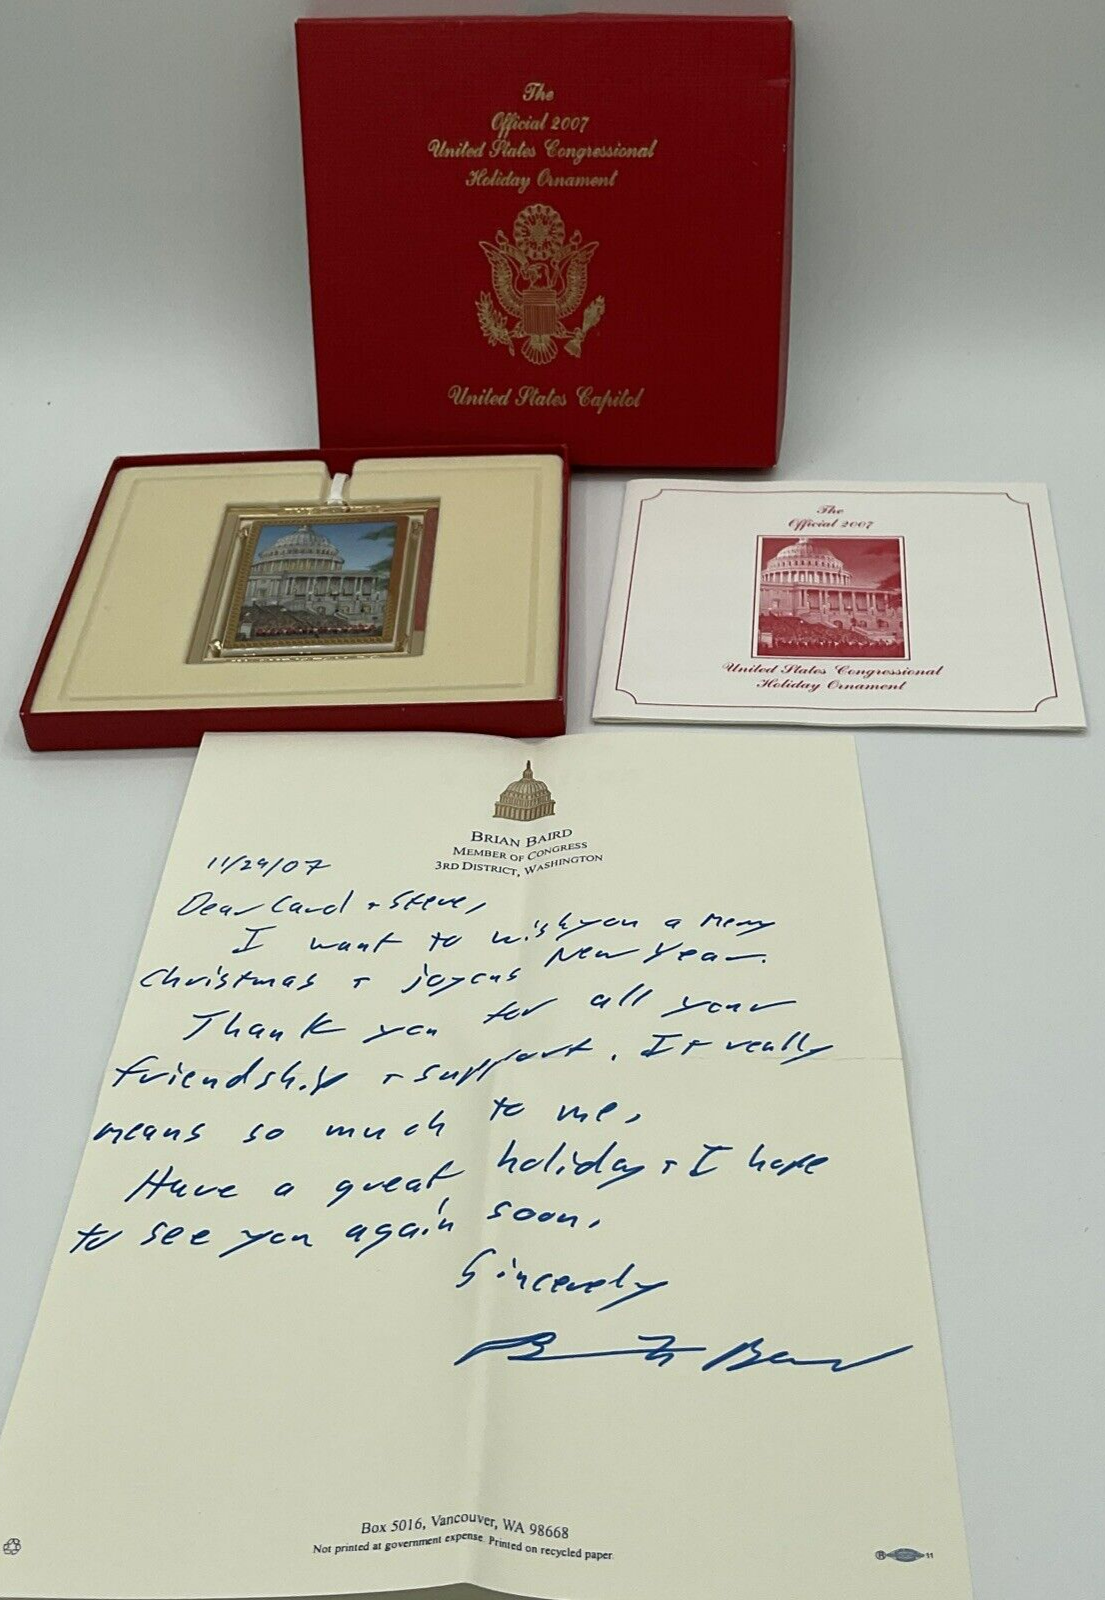 The
Official 2007
United States Congressional
Holiday Ornament
United States Capitol
The
Official 2007
United States Congressional
Holiday Ornament
BRIAN BAIRD
MEMBER OF CONGRESS
3RD DISTRICT, WASHINGTON
11/29/07
Dear Carol + Steve,
I want to wish you a Merry
Christmas + joyous New Year.
Thank you for all your
friendship + support. It really
means so much to me.
Have a great holiday + I hope
to see you again soon.
Sincerely
Brian Baird
Box 5016, Vancouver, WA 98668
Not printed at government expense. Printed on recycled paper.
11